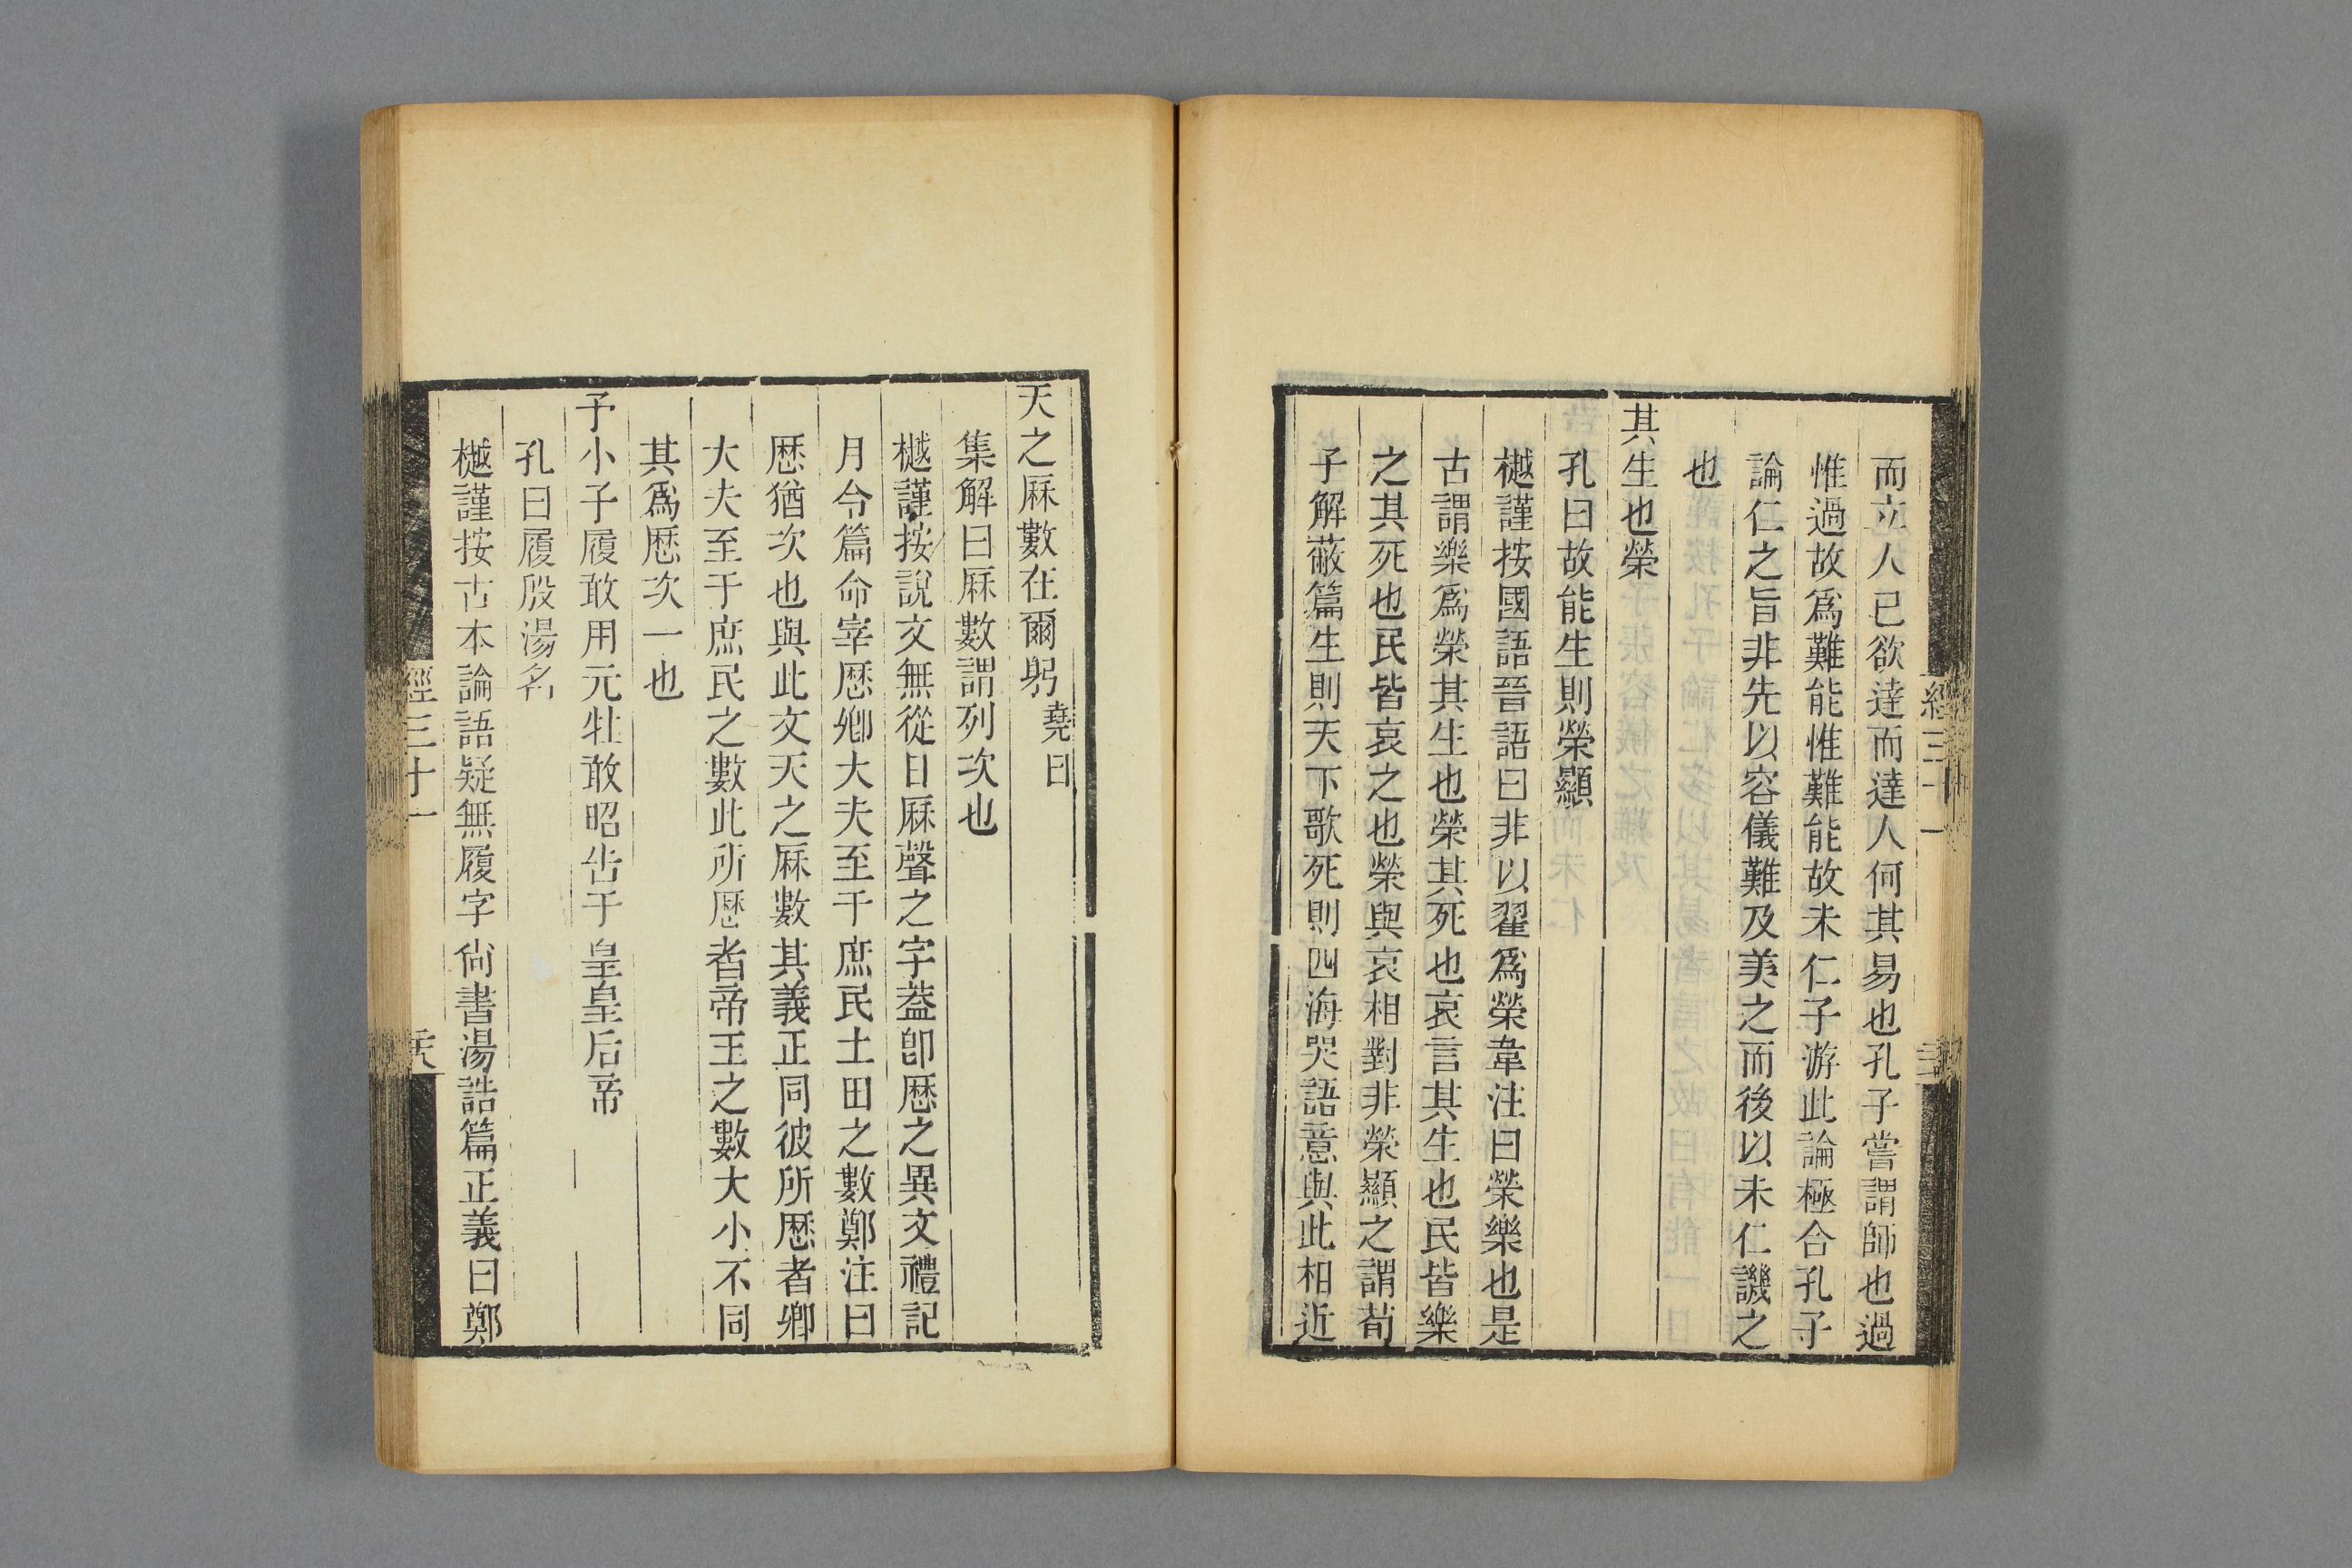 而立人已欲達而達人何其易也孔子嘗謂師也過
惟過故爲難能惟難能故未仁子游此論極合孔子
論仁之旨非先以容儀難及美之而後以未仁譏之
也
其生也榮
孔曰故能生則榮顯
樾謹按國語晉語曰非以翟爲榮韋注曰榮樂也是
古謂樂爲榮其生也榮其死也哀言其生也民皆樂
之其死也民皆哀之也榮與哀相對非榮顯之謂荀
子解蔽篇生則天下歌死則四海哭語意與此相近
經三十一
天之厤數在爾躬堯曰
集解曰厤數謂列次也
樾謹按說文無從日厤聲之字葢卽歷之異文禮記
月令篇命宰歷卿大夫至于庶民土田之數鄭注曰
歷猶次也與此文天之厤數其義正同彼所歷者卿
大夫至于庶民之數此所歷者帝王之數大小不同
其爲歷次一也
予小子履敢用元牡敢昭告于皇皇后帝
孔曰履殷湯名
樾謹按古本論語疑無履字尙書湯誥篇正義曰鄭
經三十一